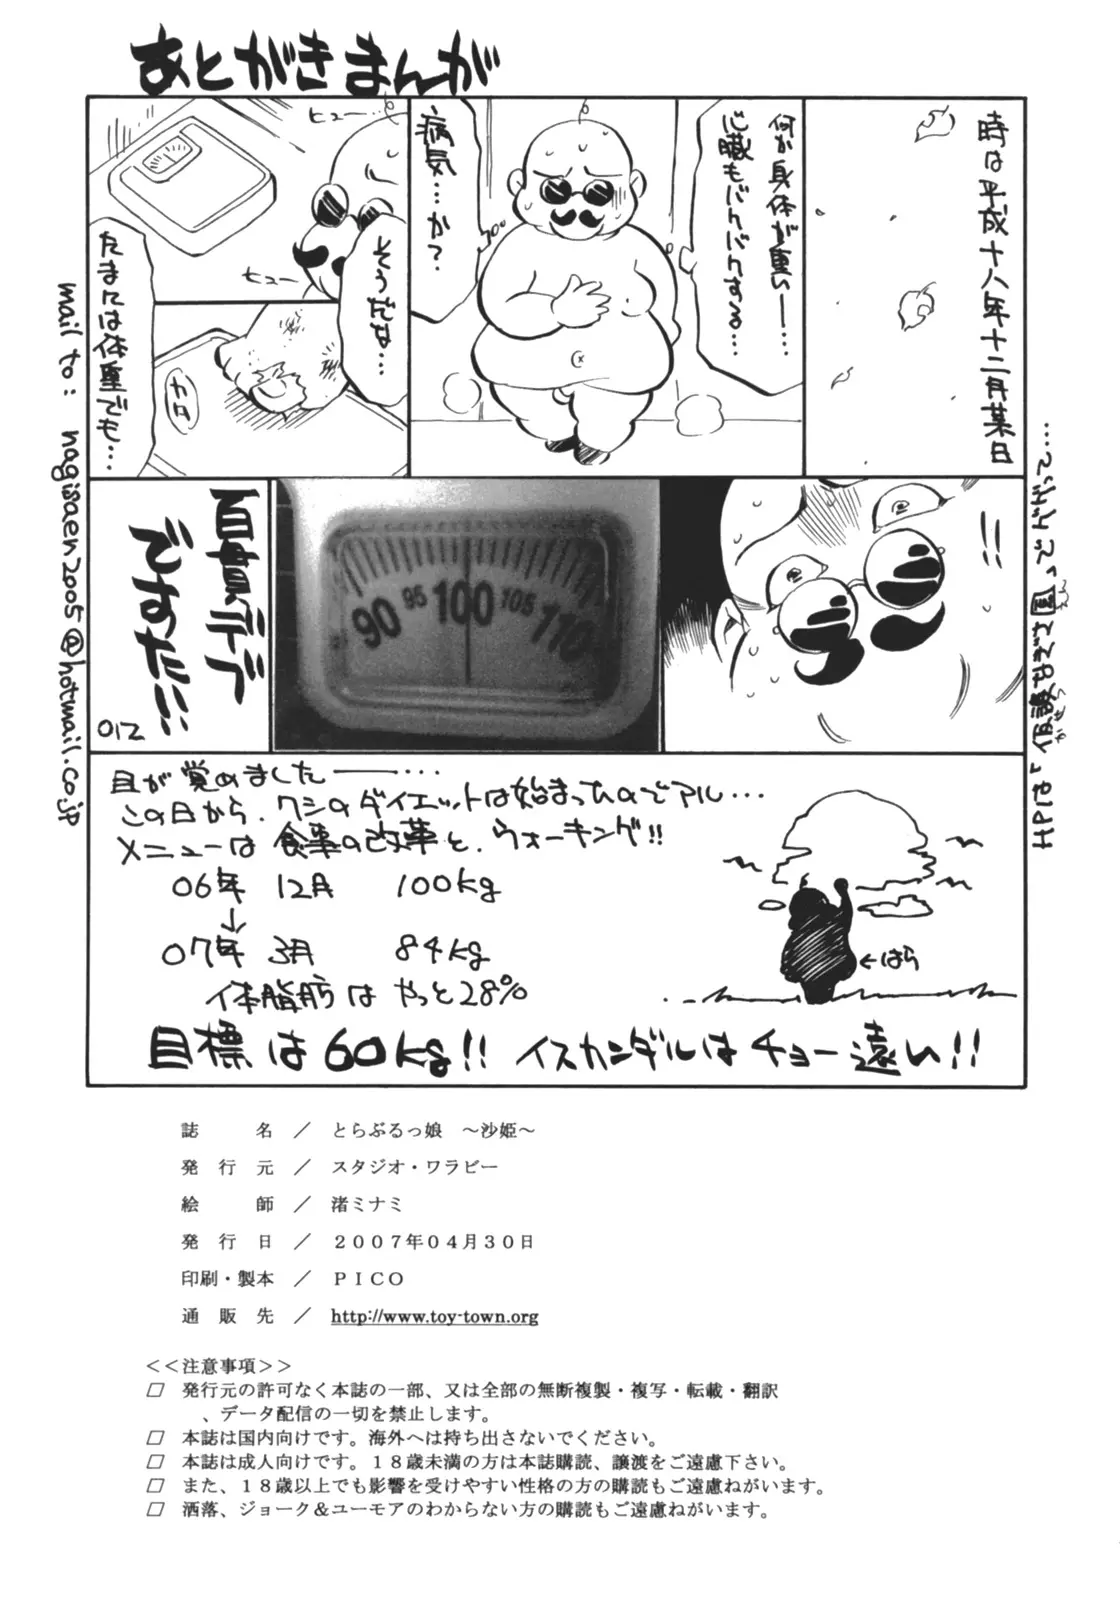 あとがきまんが
時は平成十八年十二月某日
何か身体が重い──…
心臓もバクバクする…
病気…か?
ヒュー…
そうだな…
ヒュー
たまには体重でも…
カタ
!!
90 95 100 105 110
百貫デブ
ですた!!!
012
目が覚めました───…
この日から、ワシのダイエットは始まったのでアル…
メニューは食事の改革と、ウォーキング!!
06年 12月 100kg
↓
07年 3月 84kg
体脂肪はやっと28%
←はら
目標は60kg!! イスカンダルはチョー遠い!!
mail to: nagisaen2005@hotmail.co.jp
誌名/とらぶるっ娘 ~沙姫~
発行元/スタジオ・ワラビー
絵師/渚ミナミ
発行日/2007年04月30日
印刷・製本/PICO
通販先/http://www.toy-town.org
<<注意事項>>
□ 発行元の許可なく本誌の一部、又は全部の無断複製・複写・転載・翻訳
、データ配信の一切を禁止します。
□ 本誌は国内向けです。海外へは持ち出さないでください。
□ 本誌は成人向けです。18歳未満の方は本誌購読、譲渡をご遠慮下さい。
□ また、18歳以上でも影響を受けやすい性格の方の購読もご遠慮ねがいます。
□ 洒落、ジョーク&ユーモアのわからない方の購読もご遠慮ねがいます。